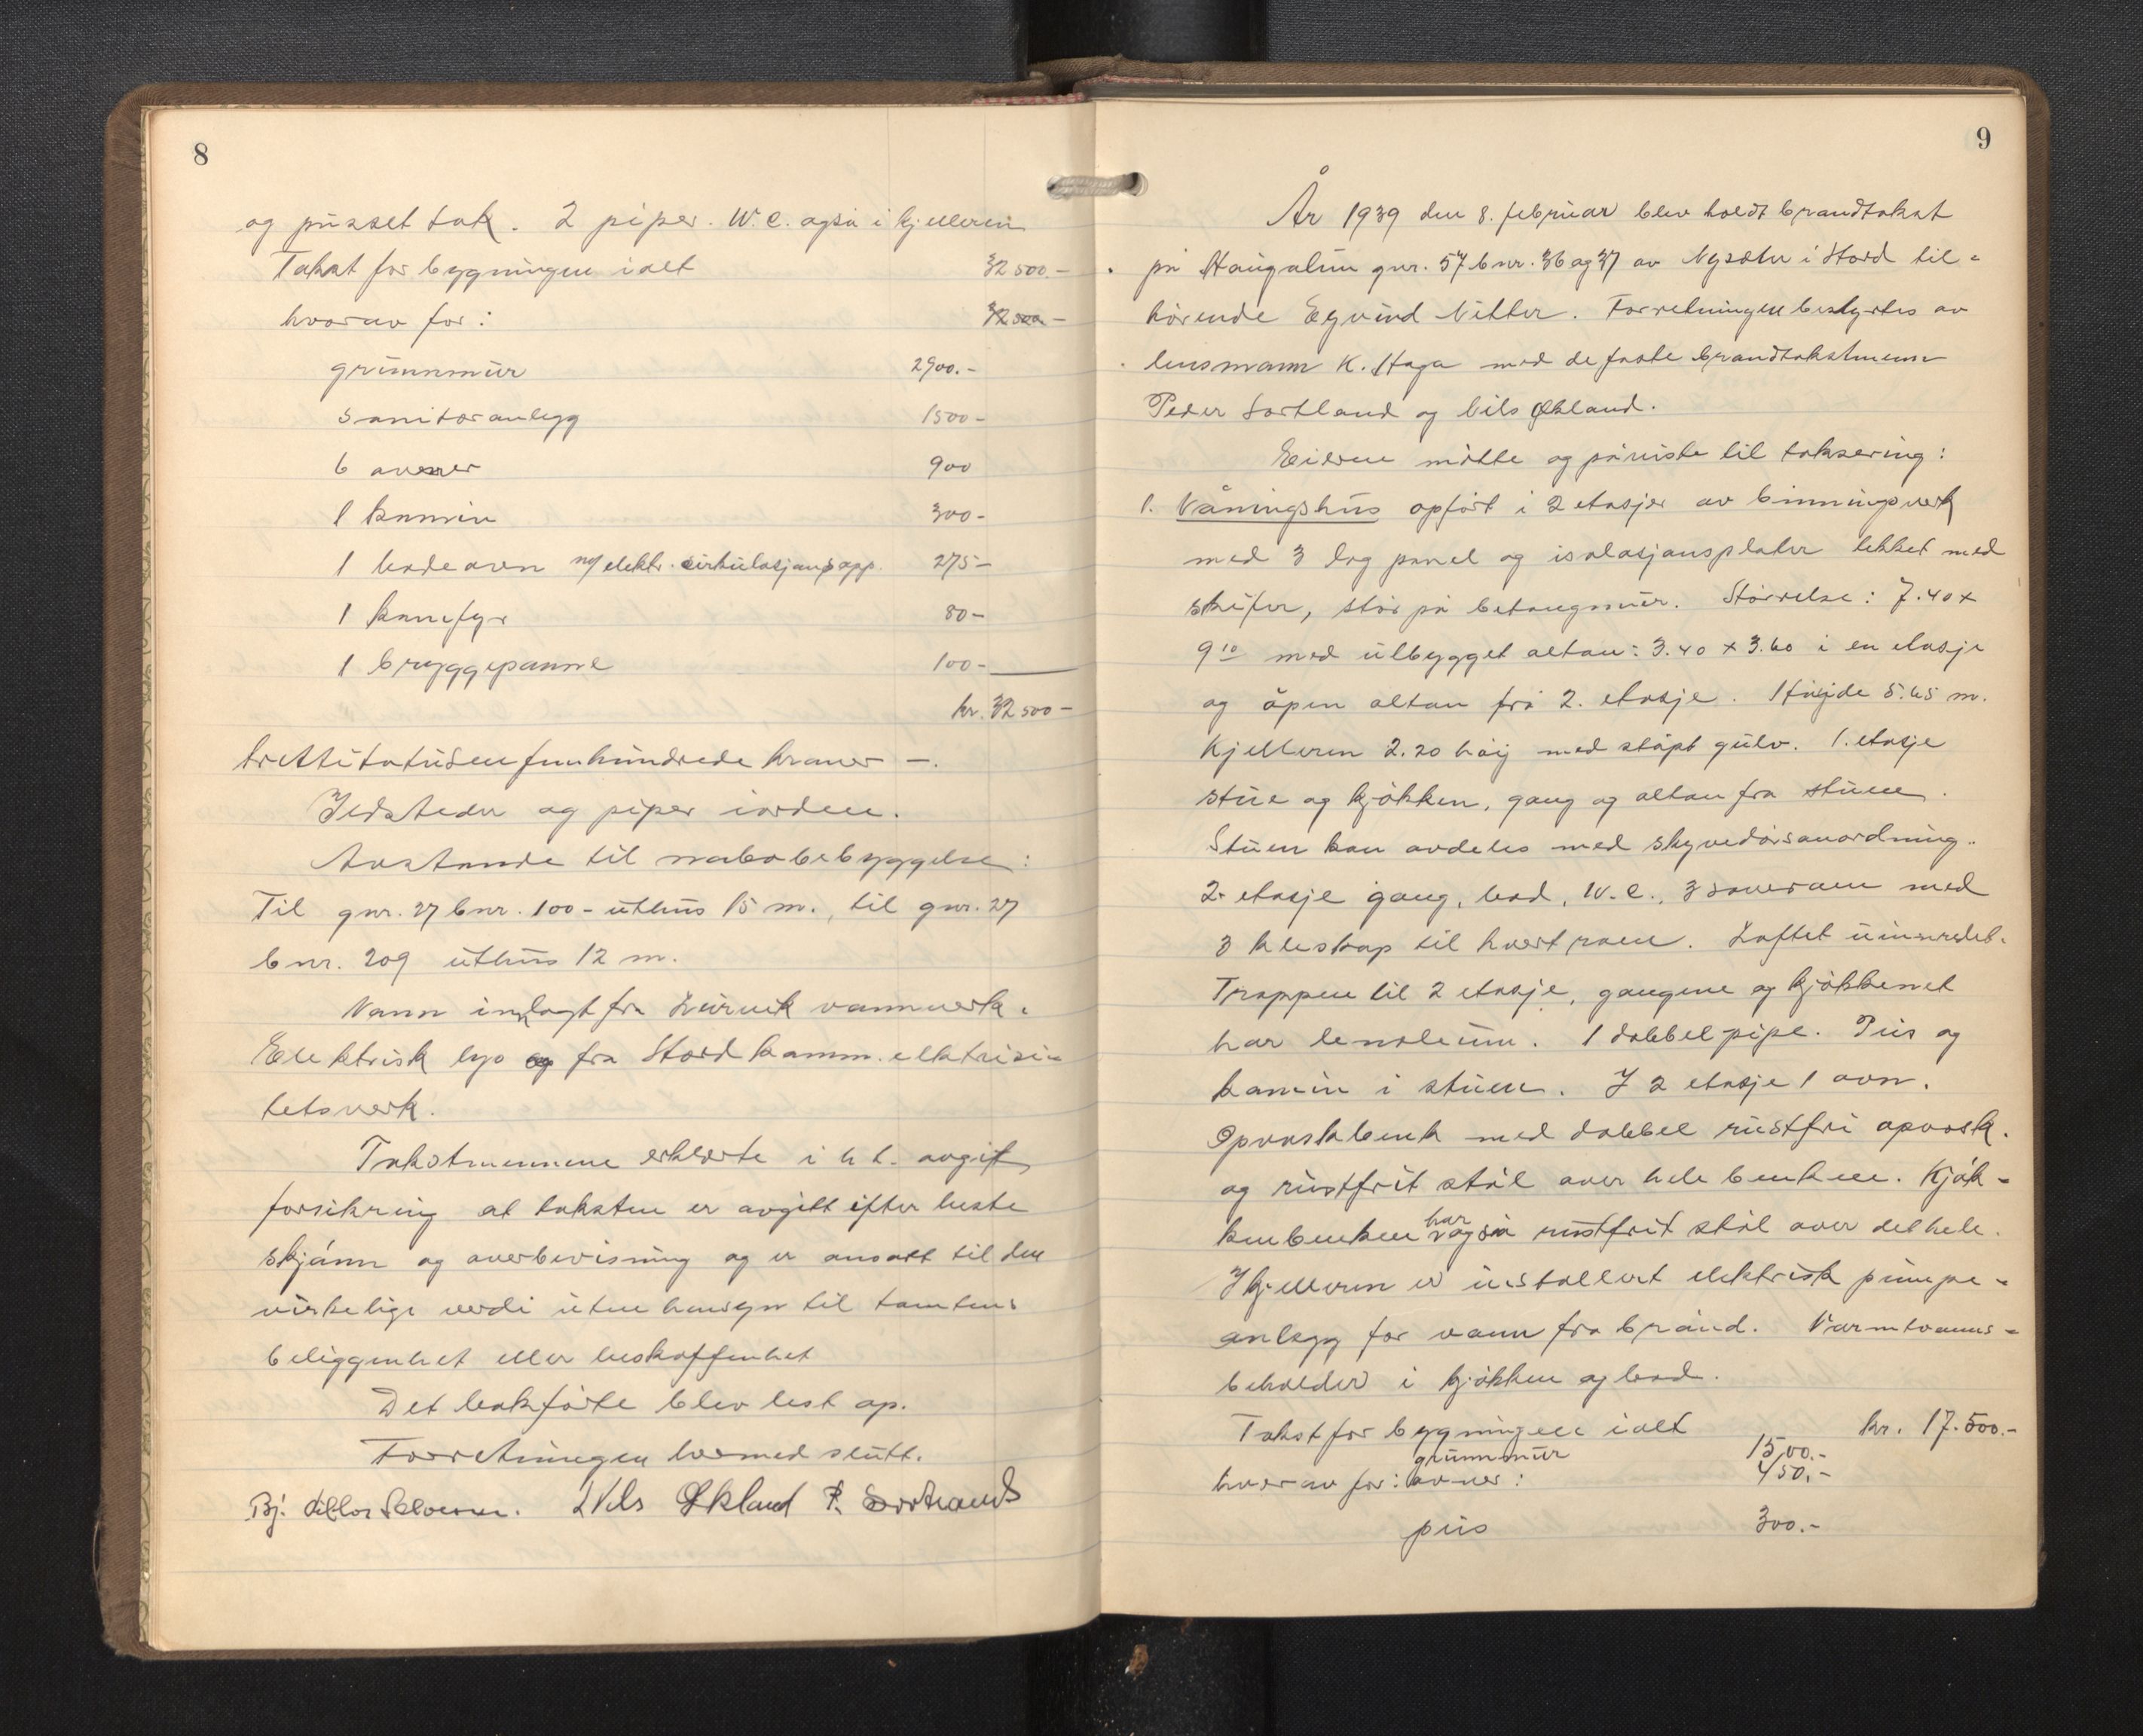 8
og pusset tak. 2 piper. W.C. også i kjelleren
Takst for bygningen ialt 32500.-
hvorav for:
grunnmur 2900.-
sanitæranlegg 1500-
6 ovner 900
1 kamin 300-
1 badeovn m/ elektr. sirkulasjonsapp. 275-
1 kanefyr 80-
1 bryggepanne 100-
kr. 32500-
trettitotusenfemhundrede kroner -.
Ildsteder og piper iorden.
Avstande til nabobebyggelse:
Til gnr. 27 bnr. 100 - uthus 15 m., til gnr. 27
bnr. 209 uthus 12 m.
Vann innlagt fra Leirvik vannverk.
Elektrisk lys fra Stord komm. elktrisi-
tetsverk.
Takstmennene erklærte i h t. avgit
forsikring at taksten er avgitt efter beste
skjønn og overbevisning og er ansatt til den
virkelige verdi uten hensyn til tomtens
beliggenhet eller beskaffenhet
Det bokførte blev lest op.
Forretningen hermed slutt.
Nils Økland P. Sortland
9
År 1939 den 8. februar blev holdt brandtakst
på Haugatun gnr. 57 bnr. 36 og 37 av Nysæter i Stord til-
hørende Eyvind Nitter. Forretningen bestyrtes av
lensmann K. Haga med de faste brandtakstmenn
Peder Sortland og Nils Økland.
Eieren møtte og påviste til taksering:
1. Våningshus opført i 2 etasjer av binningsverk
med 3 lag panel og isolasjonsplater tekket med
skifer, står på betongmur. Størrelse: 7.40 x
9.10 med utbygget altan: 3.40 x 3.60 i en etasje
og åpen altan frå 2. etasje. Høyde 5.65 m.
Kjelleren 2.20 høy med støpt gulv. 1. etasje
stue og kjøkken, gang og altan fra stuen.
Stuen kan avdeles med skyvedørsanordning.
2. etasje gang, bad, W.C., 3 soverom med
3 kleskap til hvert rom. Loftet uinnredet.
Trappen til 2 etasje, gangene og kjøkkenet
har lenoleum. 1 dobbel pipe. Peis og
kamin i stuen. I 2 etasje 1 ovn.
Opvaskbenk med dobbel rustfri opvask.
og rustfrit stål over hele benken. Kjøk-
kenbenken har også rustfrit stål over det hele.
I kjelleren er installert elektrisk pumpe-
anlegg for vann fra brønd. Varmtvanns-
beholder i kjøkken og bad.
Takst for bygningen ialt kr. 17.500.-
grunnmur 1500.-
hvorav for: ovner: 450.-
peis 300.-